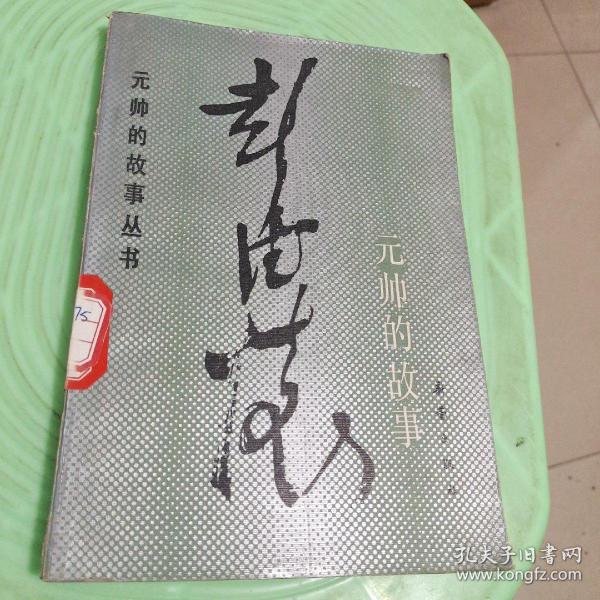 元帅的故事丛书
彭德怀
元帅的故事
75
孔夫子旧书网
www.kongfz.com